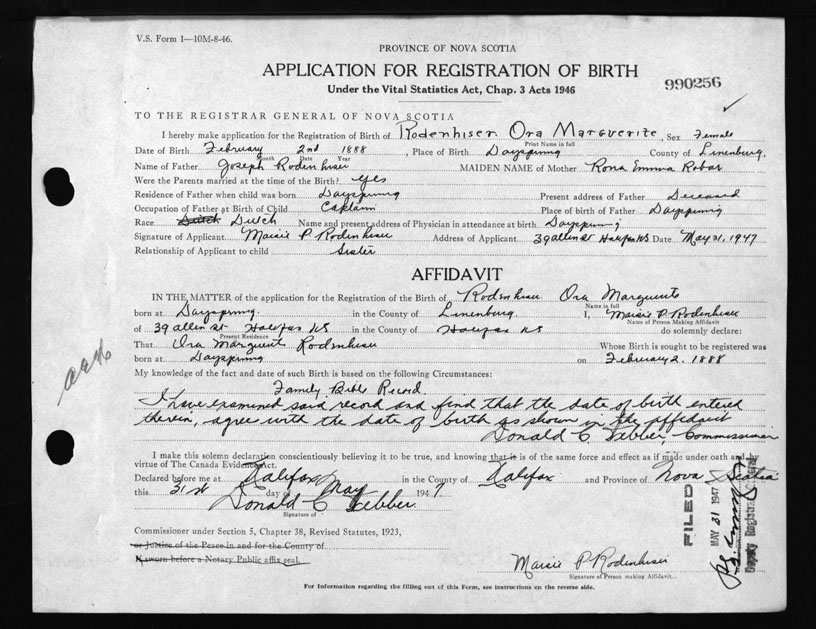 V.S. Form 1—10M-8-46.
PROVINCE OF NOVA SCOTIA
APPLICATION FOR REGISTRATION OF BIRTH
990256
Under the Vital Statistics Act, Chap. 3 Acts 1946
TO THE REGISTRAR GENERAL OF NOVA SCOTIA
I hereby make application for the Registration of Birth of Rodenhiser Ora Marguerite, Sex Female
Print Name in full
Date of Birth February 2nd 1888, Place of Birth Dayspring County of Lunenburg.
Month Date Year
Name of Father Joseph Rodenhiser MAIDEN NAME of Mother Rona Emma Robar
Were the Parents married at the time of the Birth? Yes
Residence of Father when child was born Dayspring Present address of Father Deceased
Occupation of Father at Birth of Child Captain Place of birth of Father Dayspring
Race Dutch Dutch Name and present address of Physician in attendance at birth Dayspring
Signature of Applicant Maisie P. Rodenhiser Address of Applicant 39 allen St Halifax NS Date May 31, 1947
Relationship of Applicant to child Sister
AFFIDAVIT
IN THE MATTER of the application for the Registration of the Birth of Rodenhiser Ora Marguerite
Name in full
born at Dayspring in the County of Lunenburg I, Maisie P. Rodenhiser
Name of Person Making Affidavit
of 39 allen St Halifax NS in the County of Halifax NS do solemnly declare:
Present Residence
That Ora Marguerite Rodenhiser Whose Birth is sought to be registered was
born at Dayspring on February 2, 1888
My knowledge of the fact and date of such Birth is based on the following Circumstances:
Family Bible Record.
I have examined said record and find that the date of birth entered
therein, agree with the date of birth as shown in the affidavit
Donald C Webber, Commissioner
I make this solemn declaration conscientiously believing it to be true, and knowing that it is of the same force and effect as if made under oath and by
virtue of The Canada Evidence Act.
Declared before me at Halifax in the County of Halifax and Province of Nova Scotia
this 31st day of May 1947
Donald C Webber
Signature of
Commissioner under Section 5, Chapter 38, Revised Statutes, 1923,
or Justice of the Peace in and for the County of
If sworn before a Notary Public affix seal.
Maisie P. Rodenhiser
Signature of Person making Affidavit
FILED
MAY 31 1947
Deputy Registrar General
For Information regarding the filling out of this Form, see instructions on the reverse side.